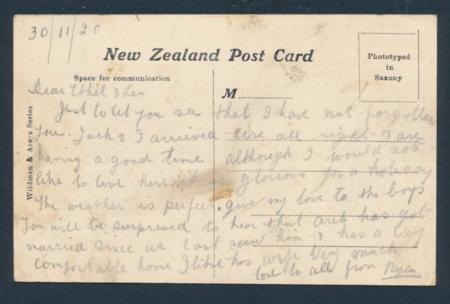 30/11/20
New Zealand Post Card
Phototyped
in
Saxony
Space for communication
M
Wildman & Arey Series
Dear Ethel & Les
Just to let you see that I have not forgotten
you. Jack & I arrived here all right & are
having a good time although I would not
like to live here it is glorious for a holiday
the weather is perfect. give my love to the boys
You will be surprised to hear that has got
married since we last seen him & has a very
comfortable home I like his wife very much
love to all from